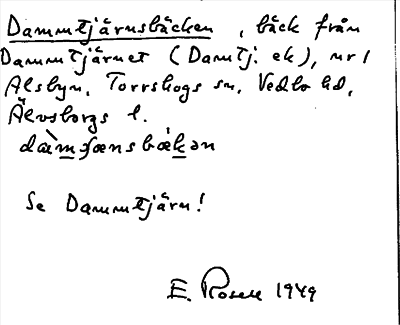 Dammtjärnsbäcken, bäck från
Dammtjärnet (Damtj. ek), nr 1
Alsbyn, Torrskogs sn, Vedbo hd,
Älvsborgs l.
Se Dammtjärn!
E. Rosell 1949